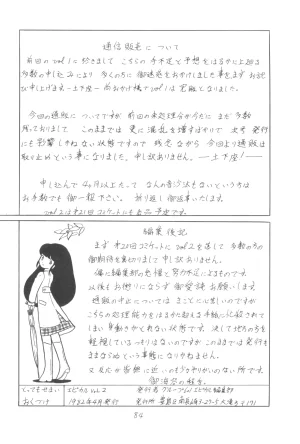 通信販売について
前回のvol.1に於きまして こちらの手不足と予想をはるかに上回る
多数の申し込みにより 多くの方に御迷惑をおかけしました事をまずお詫
び申し上げます—土下座— 尚おかげ様でvol.1は完売となりました。
今回の通販についてですが 前回の未処理分が今だに まだ多数
残っておりまして このままでは更に混乱を増すばかりで 次号発行
にも影響しかねない状態ですので 残念ながら今回より通販は
取り止めという事になりました。申し訳ありません。——土下座!——
申し込んで 4ヶ月以上たって なんの音沙汰もないという方は
お手数でも御一報下さい。 折り返し御返事いたします。
vol.2は才21回コミケットにも出品予定です。
編集後記
まず才20回コミケットにvol.2を落して多数の方の
御期待を裏切りまして 申し訳ありません。
偏に編集部の怠慢と努力不足によるものです。
以後もお懲りにならず御愛読お願いします。
通販の中止については まことに心苦しいのですが
こちらの処理能力をはるかに超える手紙に圧殺されて
しまい身動きがとれない状態です。決して地方の方を
軽視しているつもりはないのですがこのままでは発行も
ままならぬという事態になりかねません。
とってもせまい
おくつけ
vol.2
1982年4月発行
発行者
発行所
84